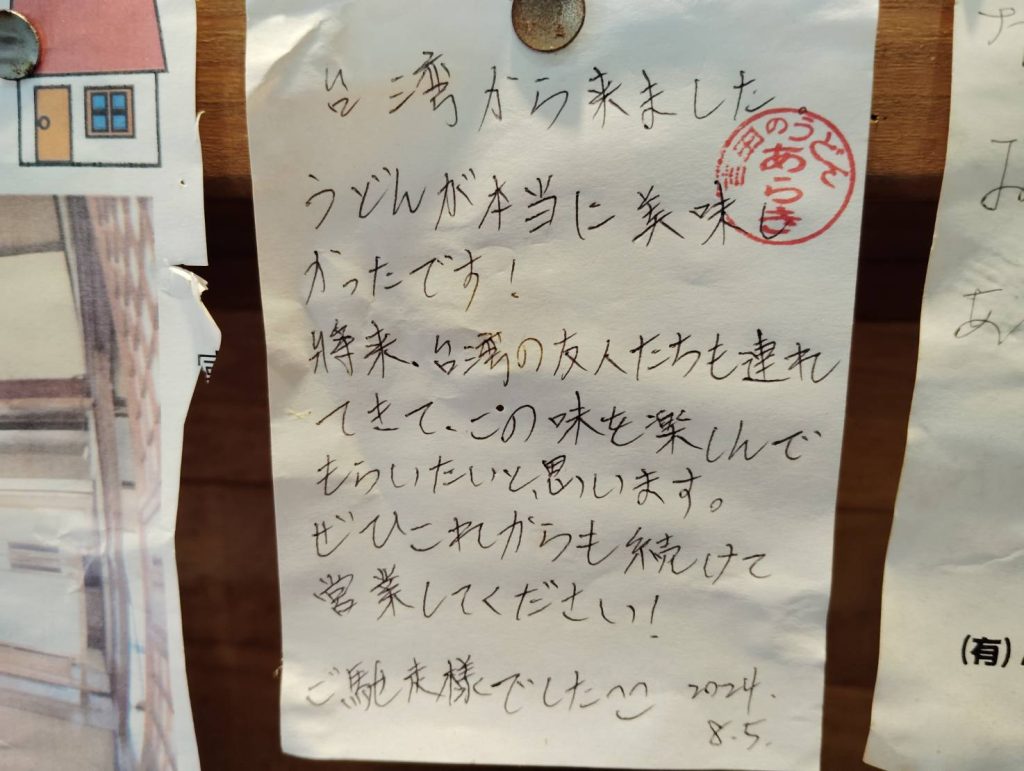 台湾から来ました。
吉田のうどん
あらき
うどんが本当に美味し
かったです!
將来、台湾の友人たちも連れ
てきて、この味を楽しんで
もらいたいと、思います。
ぜひこれからも続けて
営業してください!
ご馳走様でした
2024.
8.5.
(有)